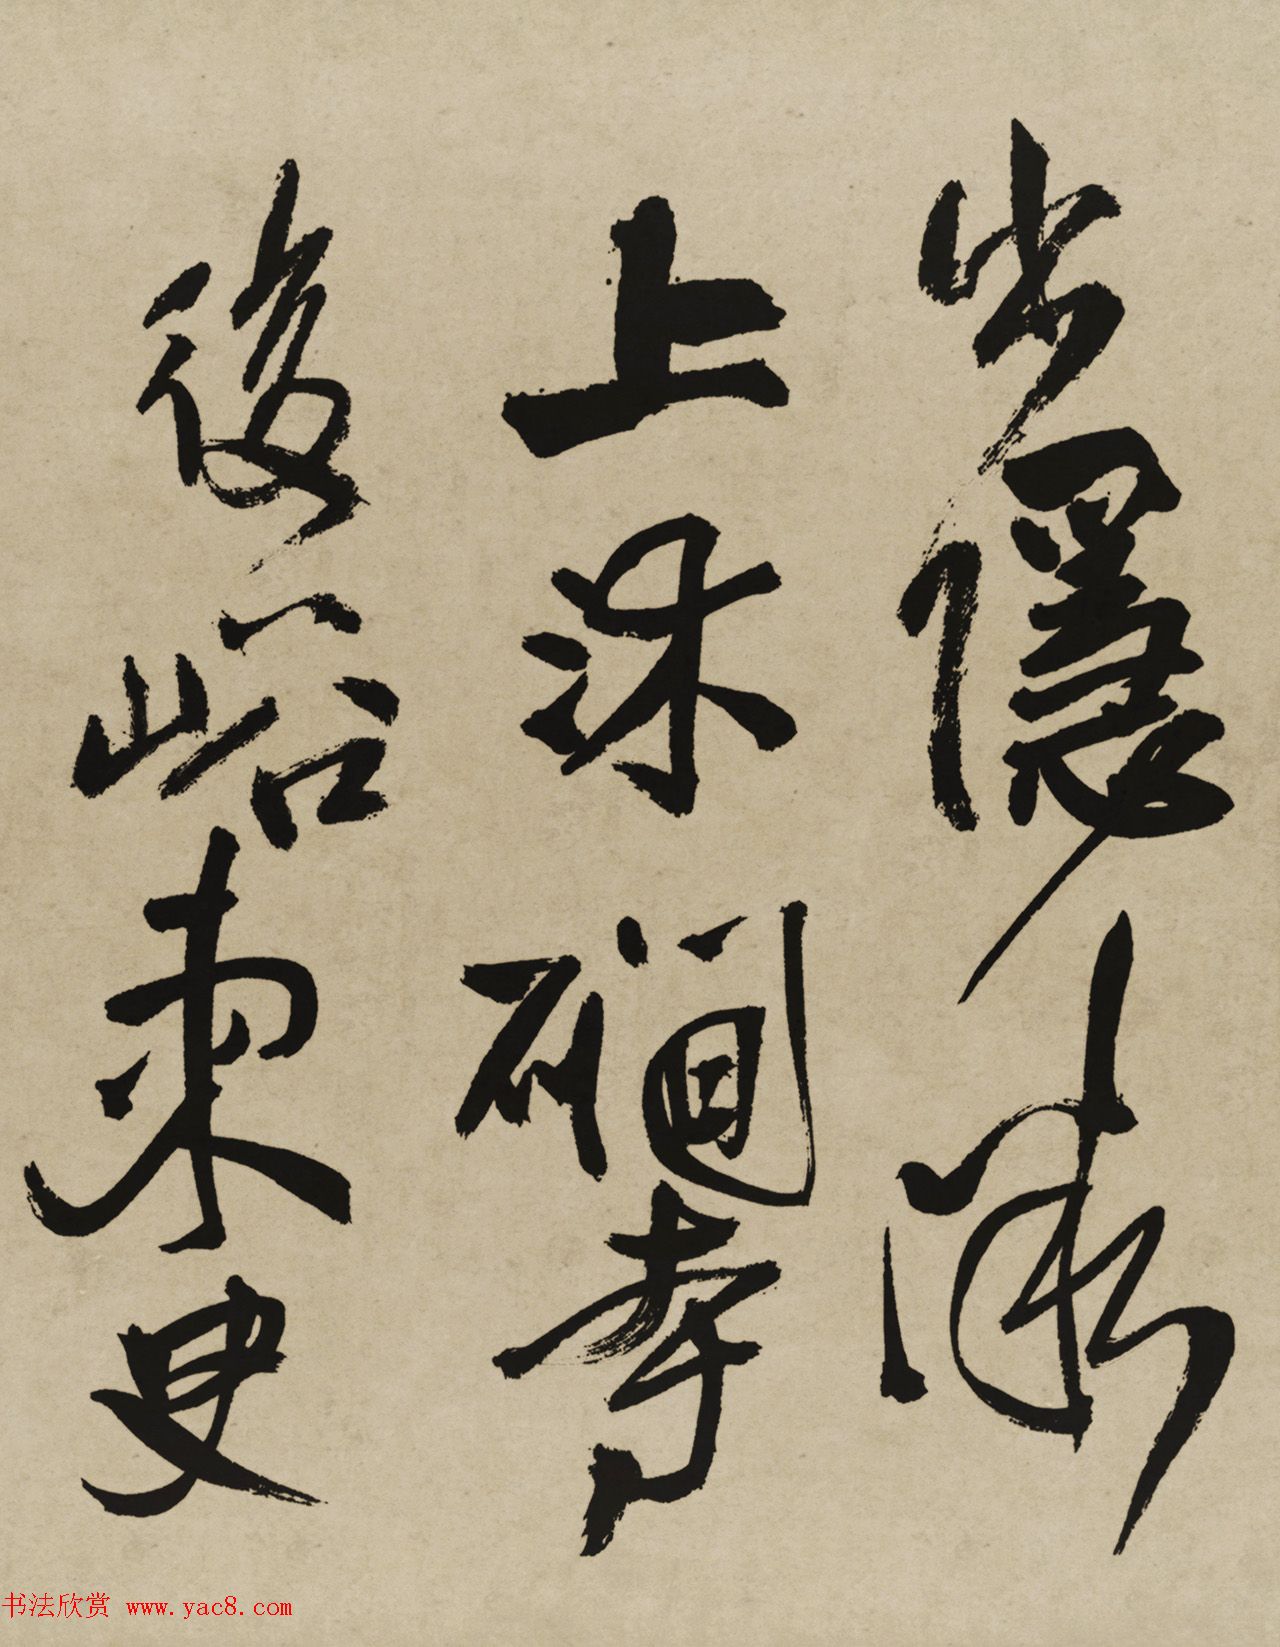 少隱清
上沐磵寺
後峪東叟
书法欣赏 www.yac8.com